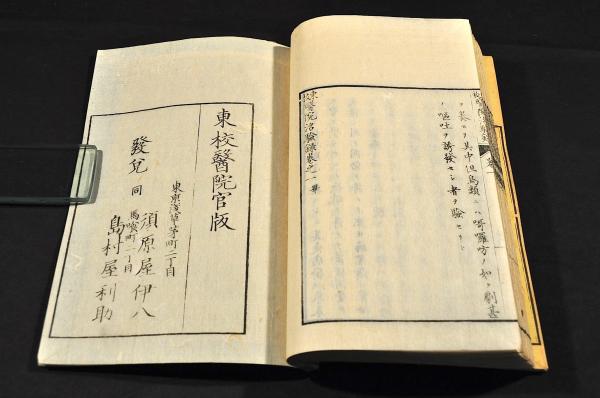 ヲ其中但鳥類ニハ哥囉方ノ如キ劇甚
ノ嘔吐ヲ誘發セシ者ヲ驗セリト
東校醫院治驗錄卷之一 畢
東校醫院官版
東京淺草茅町二丁目
須原屋伊八
發兌 同 馬喰町二丁目
島村屋利助